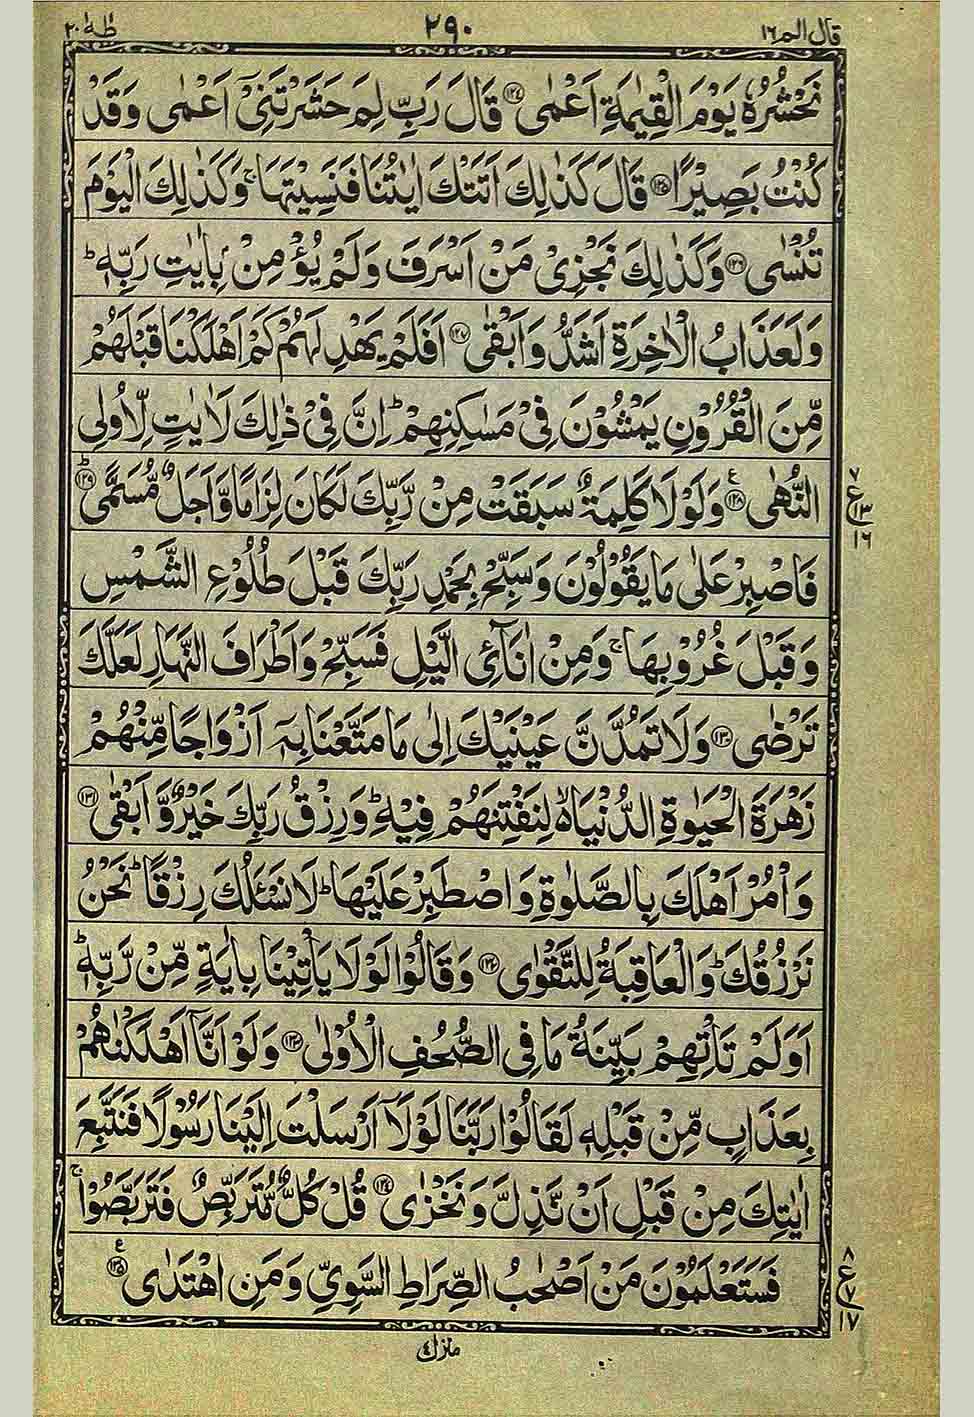 قال الم ١٦ ٢٩٠ طٰهٰ ٢٠
نَحْشُرُهٗ يَوْمَ الْقِيٰمَةِ اَعْمٰى ١٢٤ قَالَ رَبِّ لِمَ حَشَرْتَنِيْٓ اَعْمٰى وَقَدْ
كُنْتُ بَصِيْرًا ١٢٥ قَالَ كَذٰلِكَ اَتَتْكَ اٰيٰتُنَا فَنَسِيْتَهَا ۚ وَكَذٰلِكَ الْيَوْمَ
تُنْسٰى ١٢٦ وَكَذٰلِكَ نَجْزِيْ مَنْ اَسْرَفَ وَلَمْ يُؤْمِنْ بِاٰيٰتِ رَبِّهٖ ؕ
وَلَعَذَابُ الْاٰخِرَةِ اَشَدُّ وَاَبْقٰى ١٢٧ اَفَلَمْ يَهْدِ لَهُمْ كَمْ اَهْلَكْنَا قَبْلَهُمْ
مِّنَ الْقُرُوْنِ يَمْشُوْنَ فِيْ مَسٰكِنِهِمْ ؕ اِنَّ فِيْ ذٰلِكَ لَاٰيٰتٍ لِّاُولِي
النُّهٰى ١٢٨ ع وَلَوْلَا كَلِمَةٌ سَبَقَتْ مِنْ رَّبِّكَ لَكَانَ لِزَامًا وَّاَجَلٌ مُّسَمًّى ١٢٩ ؕ
٧ ع ١٣ ١٦
فَاصْبِرْ عَلٰى مَا يَقُوْلُوْنَ وَسَبِّحْ بِحَمْدِ رَبِّكَ قَبْلَ طُلُوْعِ الشَّمْسِ
وَقَبْلَ غُرُوْبِهَا ۚ وَمِنْ اٰنَآئِ الَّيْلِ فَسَبِّحْ وَاَطْرَافَ النَّهَارِ لَعَلَّكَ
تَرْضٰى ١٣٠ وَلَا تَمُدَّنَّ عَيْنَيْكَ اِلٰى مَا مَتَّعْنَا بِهٖٓ اَزْوَاجًا مِّنْهُمْ
زَهْرَةَ الْحَيٰوةِ الدُّنْيَا ۙ لِنَفْتِنَهُمْ فِيْهِ ؕ وَرِزْقُ رَبِّكَ خَيْرٌ وَّاَبْقٰى ١٣١
وَاْمُرْ اَهْلَكَ بِالصَّلٰوةِ وَاصْطَبِرْ عَلَيْهَا ؕ لَا نَسْـَٔلُكَ رِزْقًا ؕ نَحْنُ
نَرْزُقُكَ ؕ وَالْعَاقِبَةُ لِلتَّقْوٰى ١٣٢ وَقَالُوْا لَوْلَا يَاْتِيْنَا بِاٰيَةٍ مِّنْ رَّبِّهٖ ؕ
اَوَلَمْ تَاْتِهِمْ بَيِّنَةُ مَا فِي الصُّحُفِ الْاُوْلٰى ١٣٣ وَلَوْ اَنَّآ اَهْلَكْنٰهُمْ
بِعَذَابٍ مِّنْ قَبْلِهٖ لَقَالُوْا رَبَّنَا لَوْلَآ اَرْسَلْتَ اِلَيْنَا رَسُوْلًا فَنَتَّبِعَ
اٰيٰتِكَ مِنْ قَبْلِ اَنْ نَّذِلَّ وَنَخْزٰى ١٣٤ قُلْ كُلٌّ مُّتَرَبِّصٌ فَتَرَبَّصُوْا ۚ
فَسَتَعْلَمُوْنَ مَنْ اَصْحٰبُ الصِّرَاطِ السَّوِيِّ وَمَنِ اهْتَدٰى ١٣٥ ع
٨ ع ٧ ١٧
منزل ٤